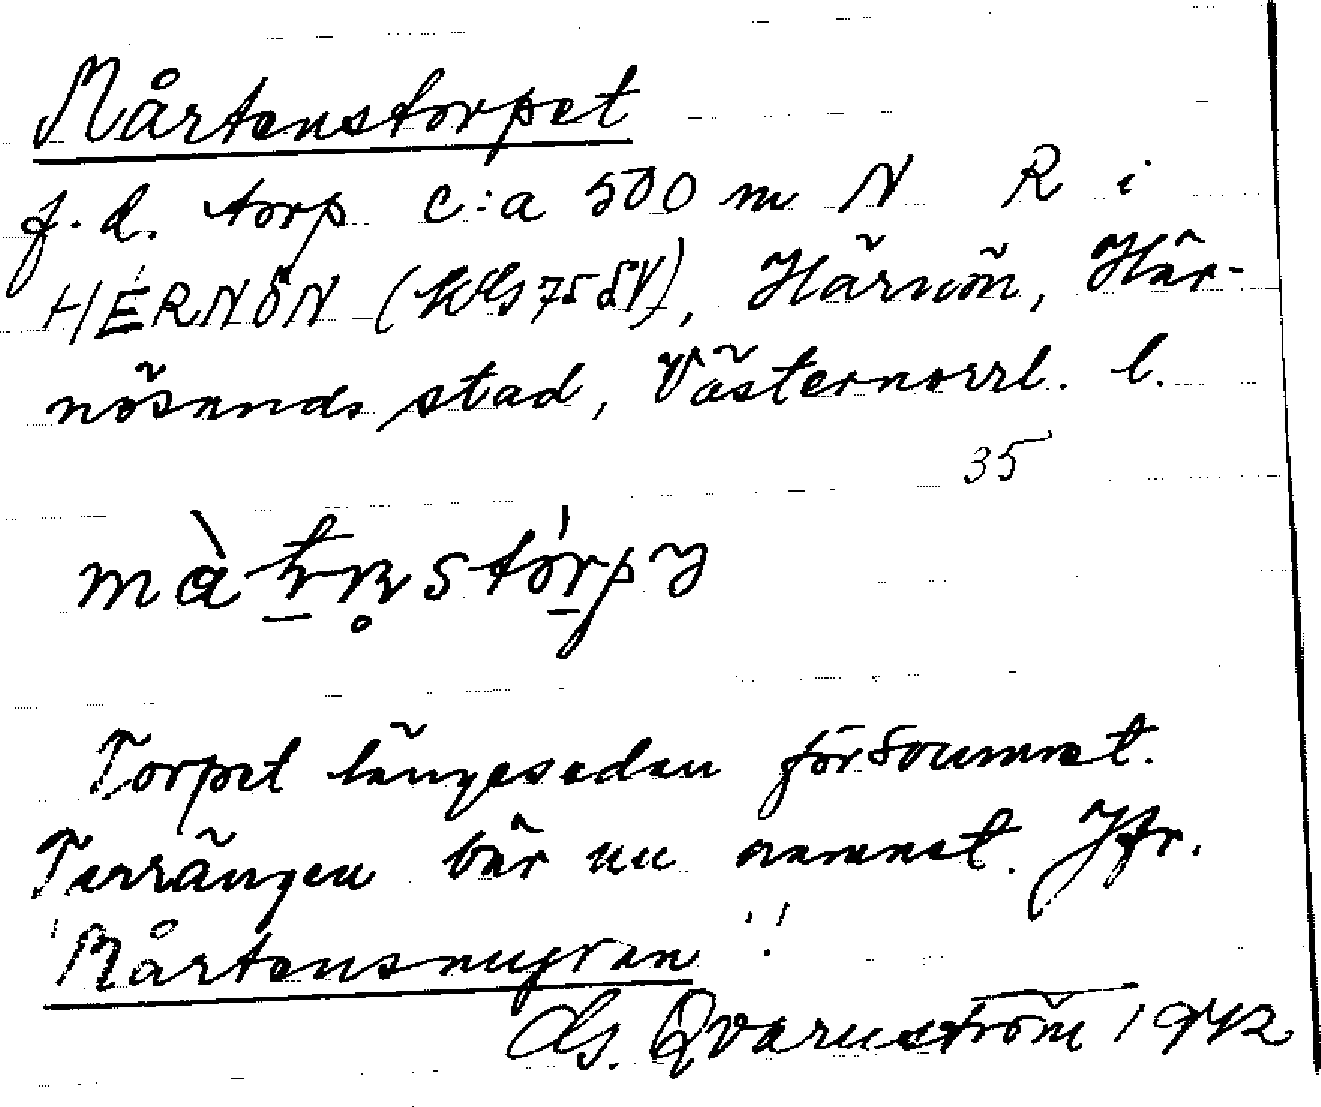 Mårtenstorpet
f.d. torp c:a 500 m N R i
HERNÖN (KBS 75 SV), Härnön, Här-
nösands stad, Västernorrl. l.
35
Torpet längesedan försvunnet.
Terrängen bär nu namnet. Jfr.
"Mårtensmyran".
G. Qvarnström 1942